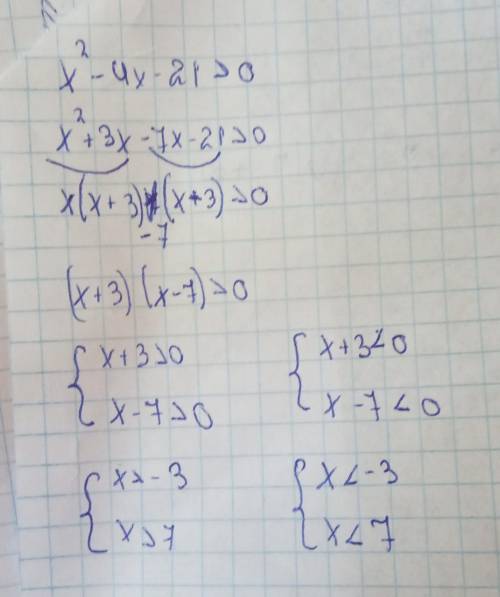 x² - 4x - 21 > 0
x² + 3x - 7x - 21 > 0
x(x + 3) (x + 3) > 0
-7
(x + 3) (x - 7) > 0
{ x + 3 > 0 { x + 3 < 0
x - 7 > 0 x - 7 < 0
{ x > -3 { x < -3
x > 7 x < 7